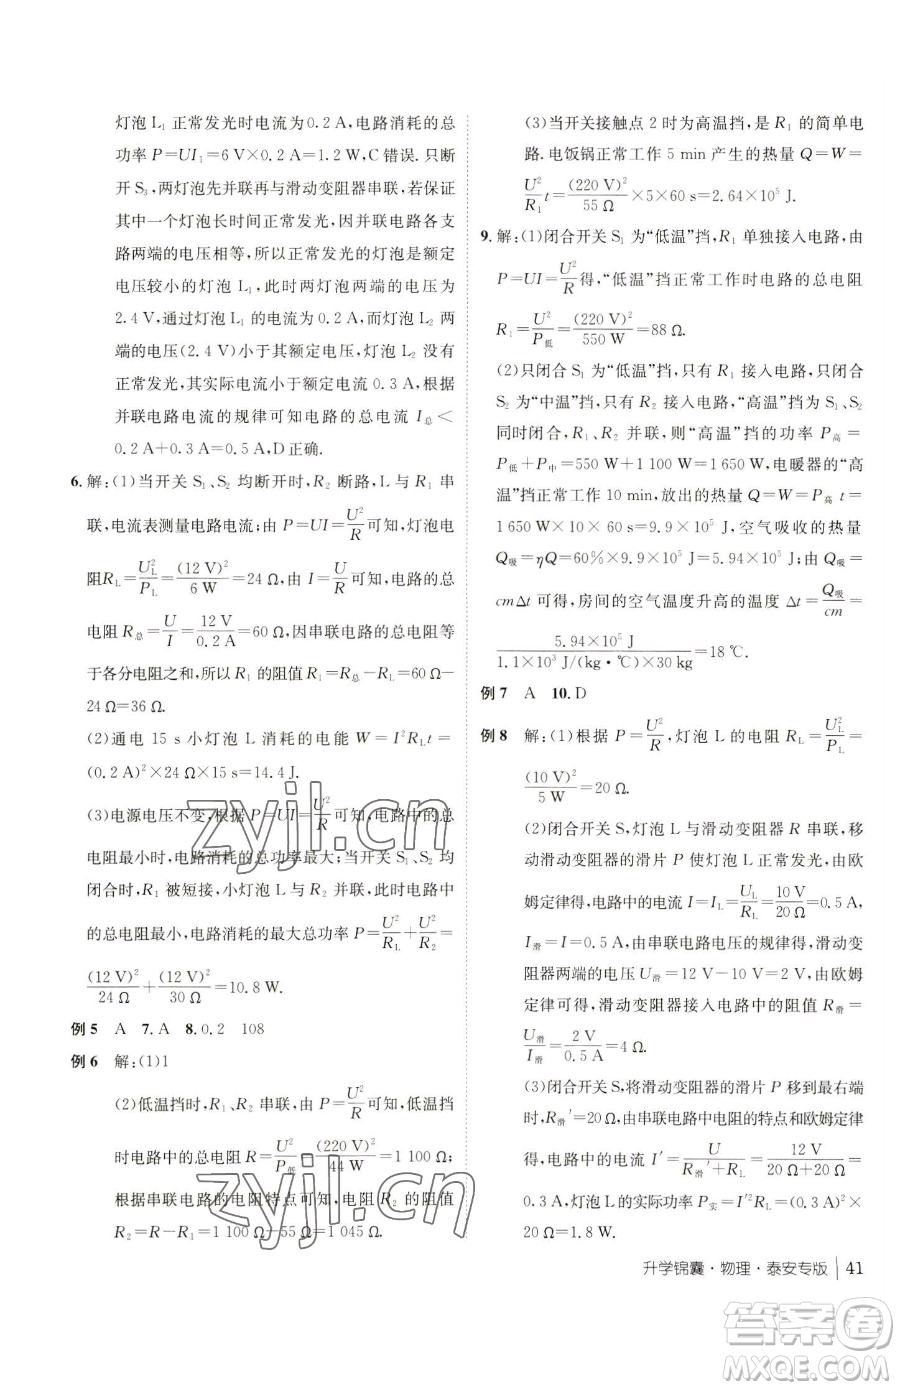 灯泡 L₁ 正常发光时电流为0.2 A,电路消耗的总
功率 P=UI₁=6 V×0.2 A=1.2 W,C 错误.只断
开 S₃,两灯泡先并联再与滑动变阻器串联,若保证
其中一个灯泡长时间正常发光,因并联电路各支
路两端的电压相等,所以正常发光的灯泡是额定
电压较小的灯泡 L₁,此时两灯泡两端的电压为
2.4 V,通过灯泡 L₁ 的电流为0.2 A,而灯泡 L₂ 两
端的电压(2.4 V)小于其额定电压,灯泡 L₂ 没有
正常发光,其实际电流小于额定电流0.3 A,根据
并联电路电流的规律可知电路的总电流 I总<
0.2 A+0.3 A=0.5 A,D 正确.
6. 解:(1)当开关 S₁、S₂ 均断开时,R₂ 断路,L 与 R₁ 串
联,电流表测量电路电流;由 P=UI=U²/R 可知,灯泡电
阻R_L=U_L²/P_L=(12 V)²/6 W=24 Ω,由 I=U/R 可知,电路的总
电阻 R总=U/I=12 V/0.2 A=60 Ω,因串联电路的总电阻等
于各分电阻之和,所以 R₁ 的阻值 R₁=R总-R_L=60 Ω-
24 Ω=36 Ω.
(2)通电 15 s 小灯泡 L 消耗的电能 W=I²R_Lt=
(0.2 A)²×24 Ω×15 s=14.4 J.
(3)电源电压不变,根据 P=UI=U²/R 可知,电路中的总
电阻最小时,电路消耗的总功率最大;当开关 S₁、S₂ 均
闭合时,R₁ 被短接,小灯泡 L 与 R₂ 并联,此时电路中
的总电阻最小,电路消耗的最大总功率 P=U²/R_L+U²/R₂=
(12 V)²/24 Ω+(12 V)²/30 Ω=10.8 W.
例 5 A 7. A 8. 0.2 108
例 6 解:(1)1
(2)低温挡时,R₁、R₂ 串联,由 P=U²/R 可知,低温挡
时电路中的总电阻 R=U²/P低=(220 V)²/44 W=1 100 Ω;
根据串联电路的电阻特点可知,电阻 R₂ 的阻值
R₂=R-R₁=1 100 Ω-55 Ω=1 045 Ω.
(3)当开关接触点 2 时为高温挡,是 R₁ 的简单电
路.电饭锅正常工作 5 min 产生的热量 Q=W=
U²/R₁ t=(220 V)²/55 Ω×5×60 s=2.64×10⁵ J.
9. 解:(1)闭合开关 S₁ 为“低温”挡,R₁ 单独接入电路,由
P=UI=U²/R得,“低温”挡正常工作时电路的总电阻
R₁=U²/P低=(220 V)²/550 W=88 Ω.
(2)只闭合开关 S₁ 为“低温”挡,只有 R₁ 接入电路,只闭合
S₂ 为“中温”挡,只有 R₂ 接入电路,“高温”挡为 S₁、S₂
同时闭合,R₁、R₂ 并联,则“高温”挡的功率 P高=
P低+P中=550 W+1 100 W=1 650 W,电暖器的“高
温”挡正常工作 10 min,放出的热量 Q=W=P高 t=
1 650 W×10×60 s=9.9×10⁵ J,空气吸收的热量
Q吸=ηQ=60%×9.9×10⁵ J=5.94×10⁵ J,由 Q吸=
cmΔt 可得,房间的空气温度升高的温度 Δt=Q吸/cm=
5.94×10⁵ J/1.1×10³ J/(kg·℃)×30 kg=18 ℃.
例 7 A 10. D
例 8 解:(1)根据 P=U²/R,灯泡 L 的电阻 R_L=U_L²/P_L=
(10 V)²/5 W=20 Ω.
(2)闭合开关 S,灯泡 L 与滑动变阻器 R 串联,移
动滑动变阻器的滑片 P 使灯泡 L 正常发光,由欧
姆定律得,电路中的电流 I=I_L=U_L/R_L=10 V/20 Ω=0.5 A,
I滑=I=0.5 A,由串联电路电压的规律得,滑动变
阻器两端的电压 U滑=12 V-10 V=2 V,由欧姆
定律可得,滑动变阻器接入电路中的阻值 R滑=
U滑/I滑=2 V/0.5 A=4 Ω.
(3)闭合开关 S,将滑动变阻器的滑片 P 移到最右端
时,R滑′=20 Ω,由串联电路中电阻的特点和欧姆定律
得,电路中的电流 I′=U/R滑′+R_L=12 V/20 Ω+20 Ω=
0.3 A,灯泡 L 的实际功率 P实=I′²R_L=(0.3 A)²×
20 Ω=1.8 W.
升学锦囊·物理·泰安专版 41
zyjl.cn
zyjl.cn
答案圈
MXQE.COM